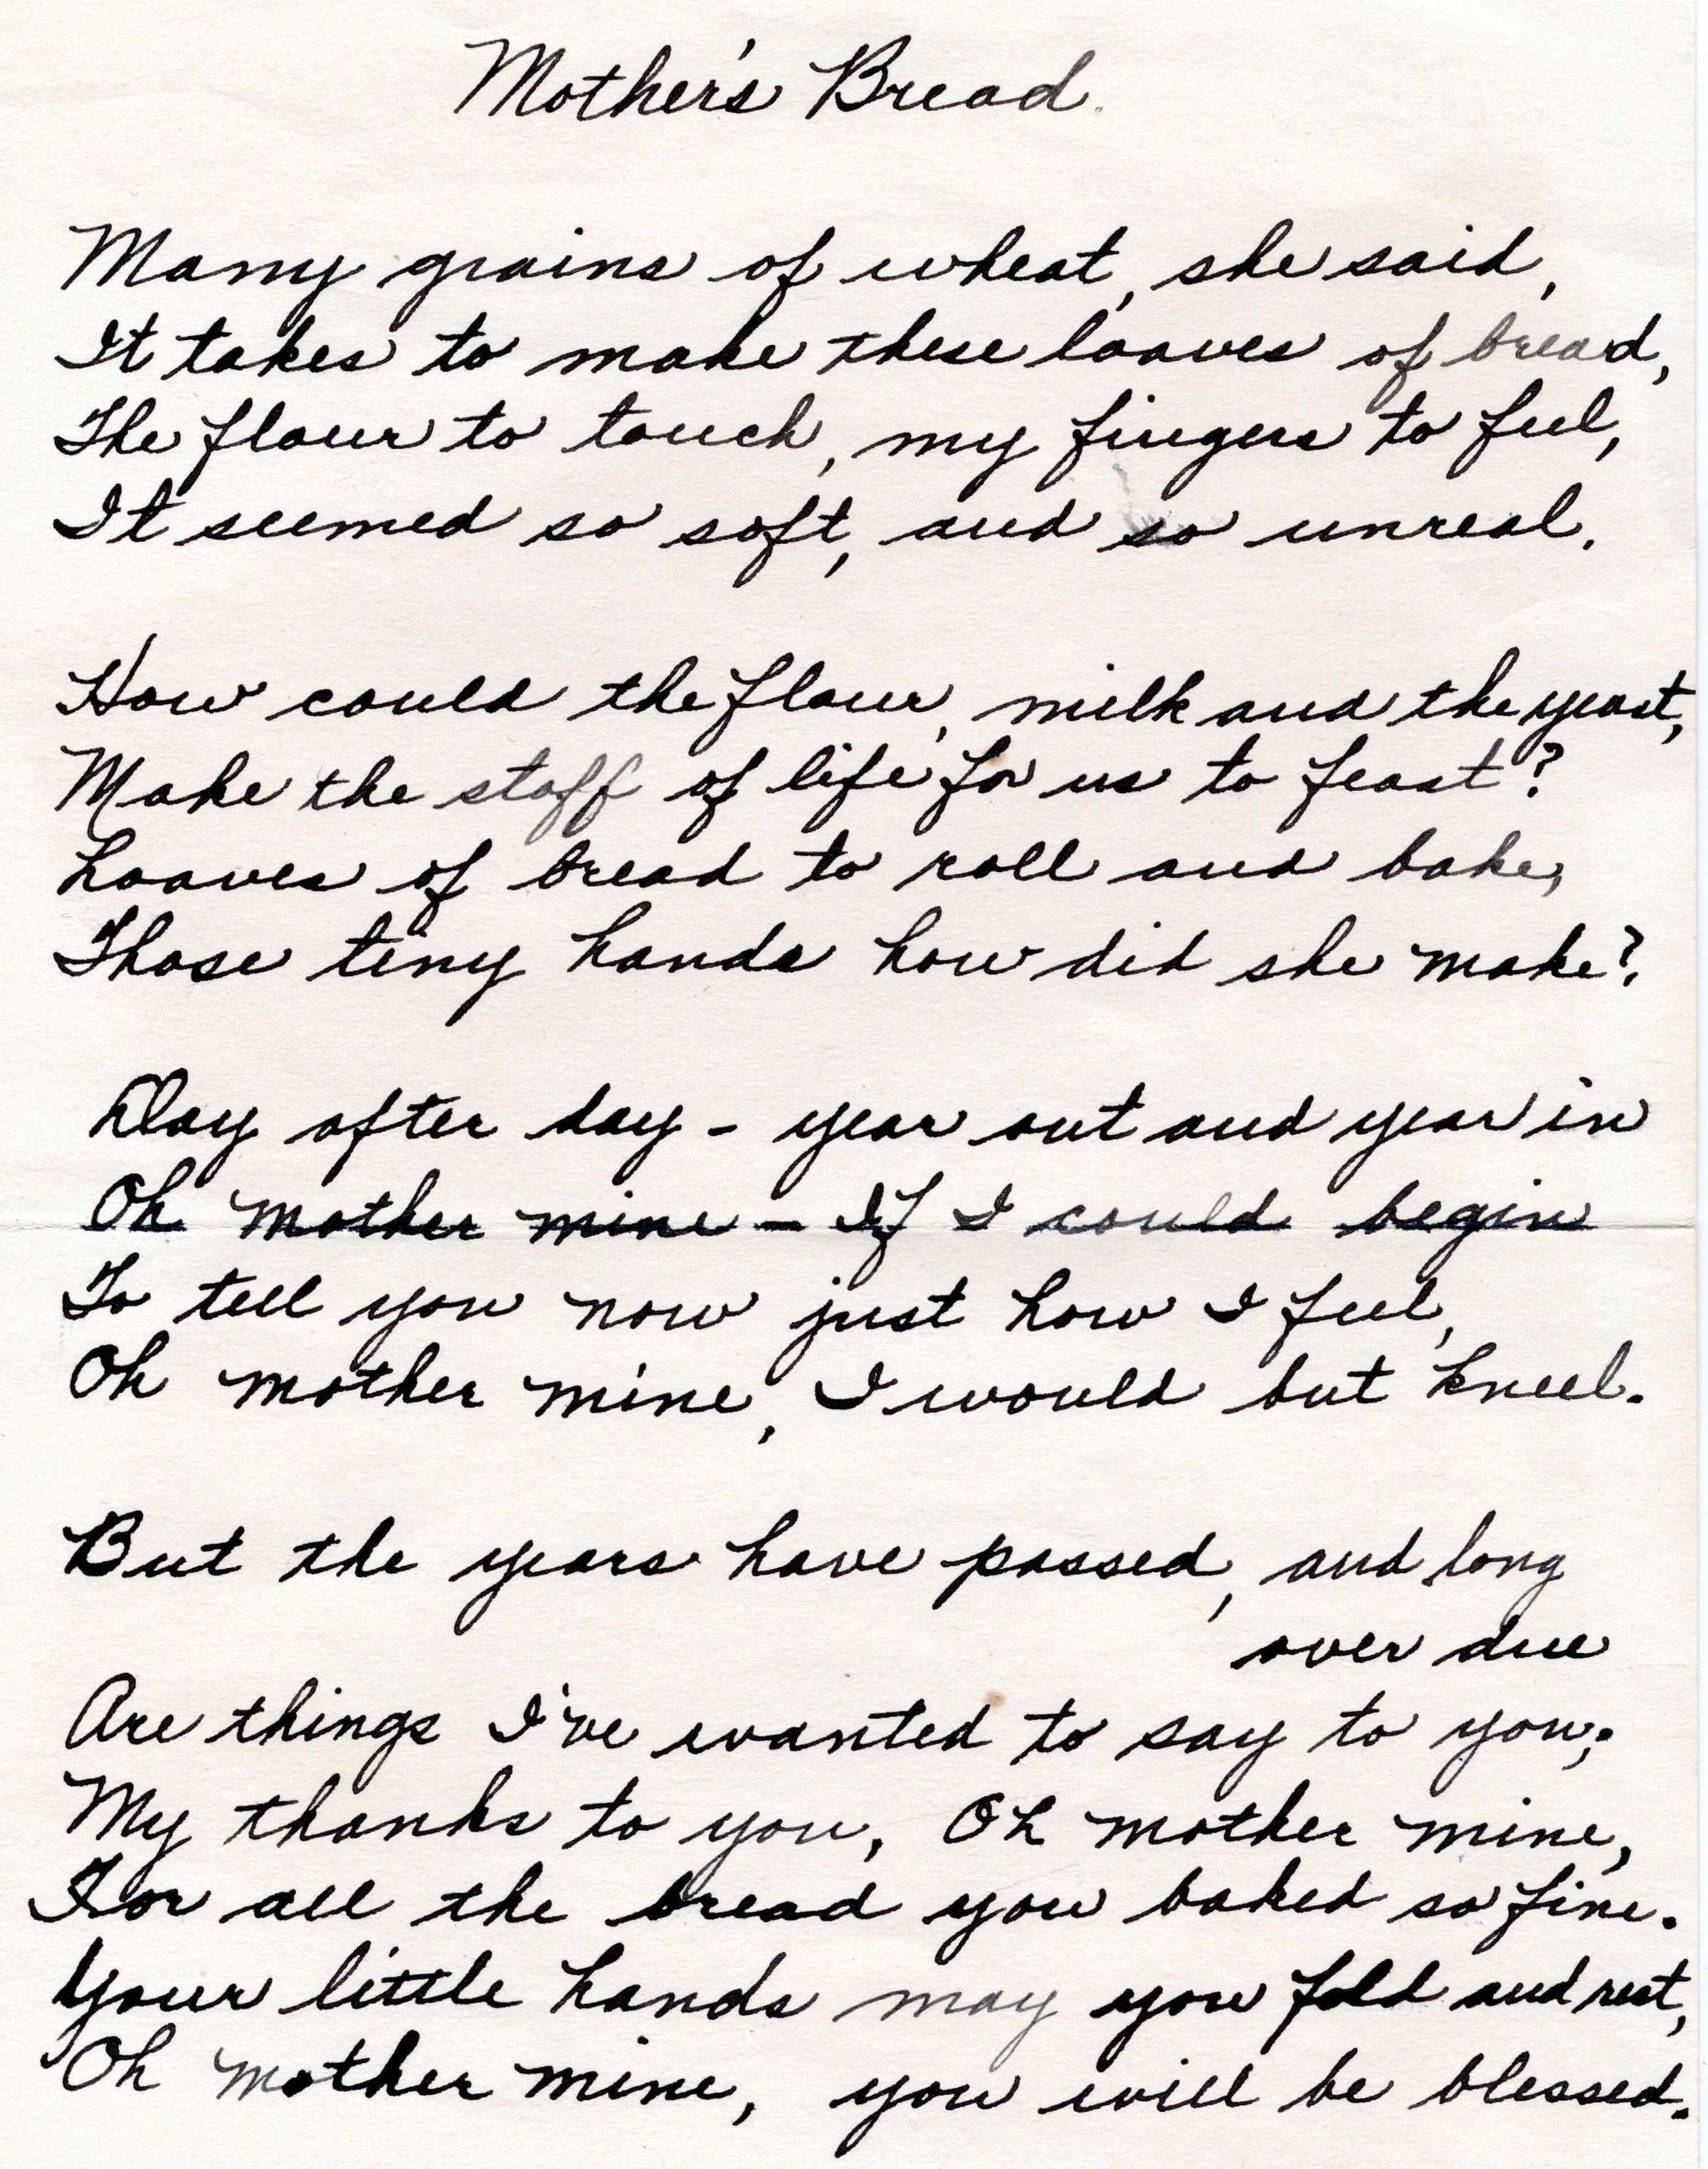 Mother's Bread.
Many grains of wheat, she said,
It takes to make these loaves of bread,
The flour to touch, my fingers to feel,
It seemed so soft, and so unreal.
How could the flour, milk and the yeast,
Make the staff of life for us to feast?
Loaves of bread to roll and bake,
Those tiny hands how did she make?
Day after day - year out and year in
Oh mother mine - If I could begin
To tell you now just how I feel,
Oh mother mine, I would but kneel.
But the years have passed, and long
over due
Are things I've wanted to say to you;
My thanks to you, Oh mother mine,
For all the bread you baked so fine.
Your little hands may you fold and rest,
Oh mother mine, you will be blessed.